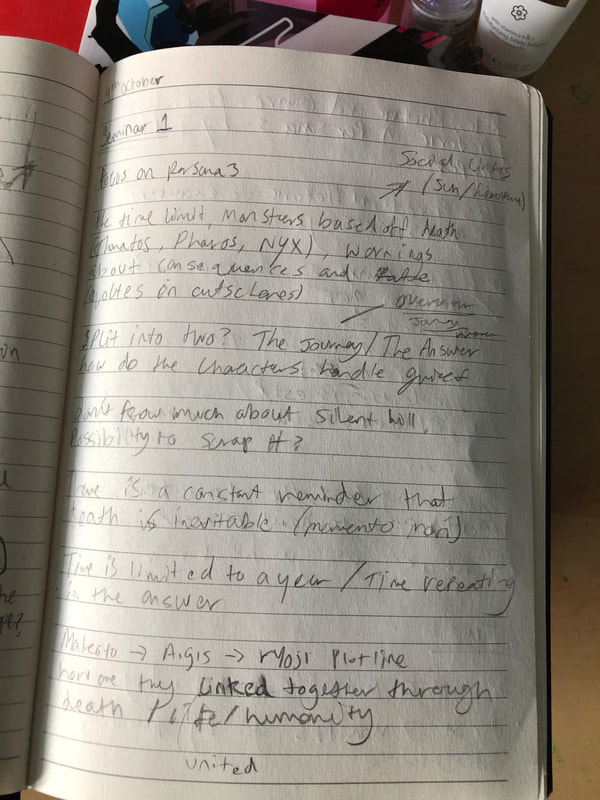 October
Seminar 1
Social Links
Focus on Persona 3
(Sun/
The time limit, monsters based off death
(Thanatos, Pharos, NYX), warnings
about consequences and
(quotes on cutscenes)
overview
Split into two? The Journey/The Answer
how do the characters handle grief
Don't know much about Silent hill.
Possibility to scrap it?
Time is a constant reminder that
death is inevitable (memento mori)
Time is limited to a year / Time repeating
in the answer
Makoto → Aigis → ryoji plotline
how are they linked together through
death / life/humanity
united